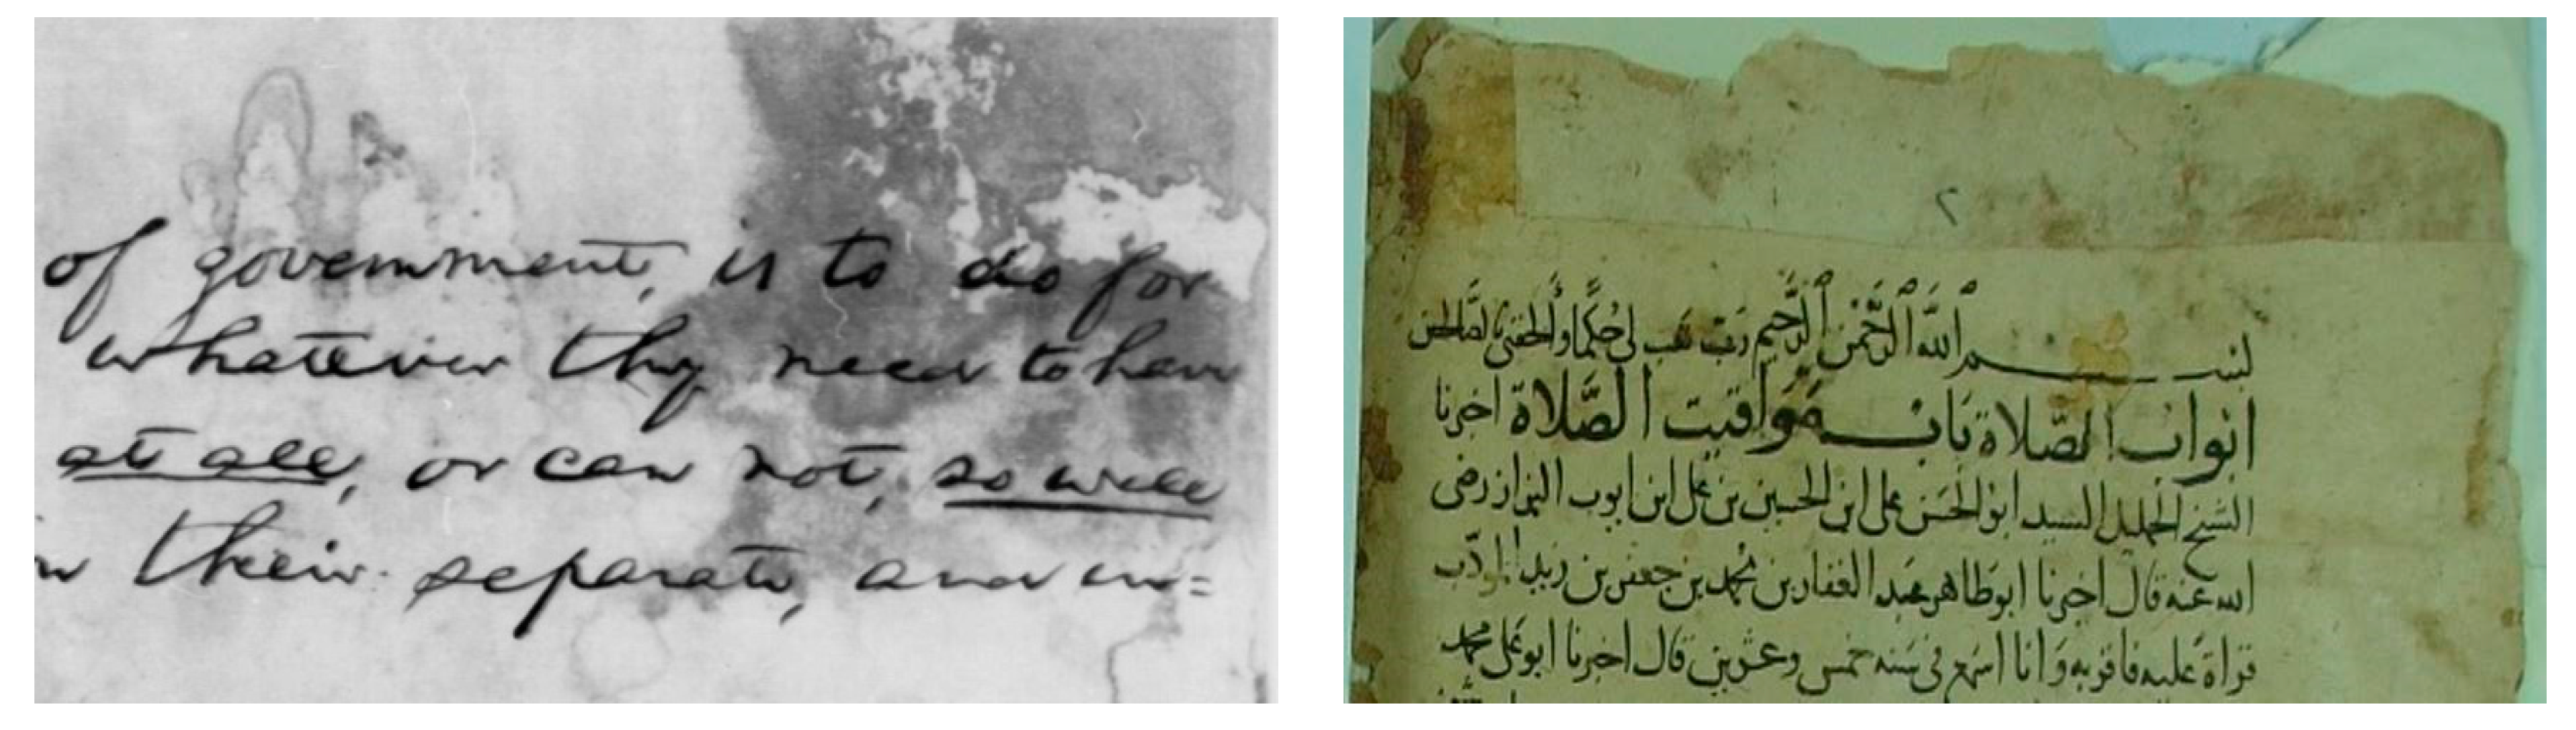 of government, is to do for
whatever they need to have
at all, or can not, so well
in their separate, and in=
٢
بســــم اللّٰه الرَّحْمٰن الرَّحيم رَبّ هَب لي حُكمًا وألحقني بالصَّالحين
ابواب الصَّلاة بَابــــ مَوَاقيت الصَّلاة اخبرنا
الشيخ الجليل السيد ابو الحَسَن على ابن الحسين بن على ابن ايوب البزاز رضى
الله عنه قال اخبرنا ابو طاهر عبد الغفار بن محمد بن جعفر بن زيد المؤدّب
قراة عليه فاقر به وَانا اسمع فى سَنه خمس وعشرين قال اخبرنا ابو على محمد